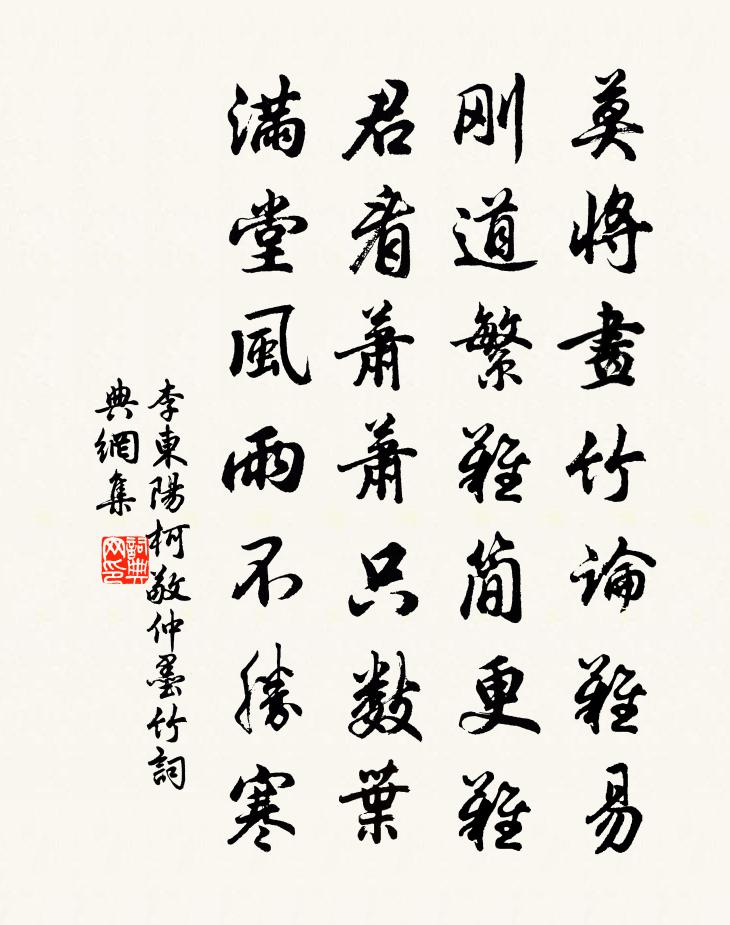 莫將畫竹論難易
刚道繁難简更難
君看蕭蕭只数葉
滿堂風雨不勝寒
李東陽柯敬仲墨竹詞
典網集
詞典网印